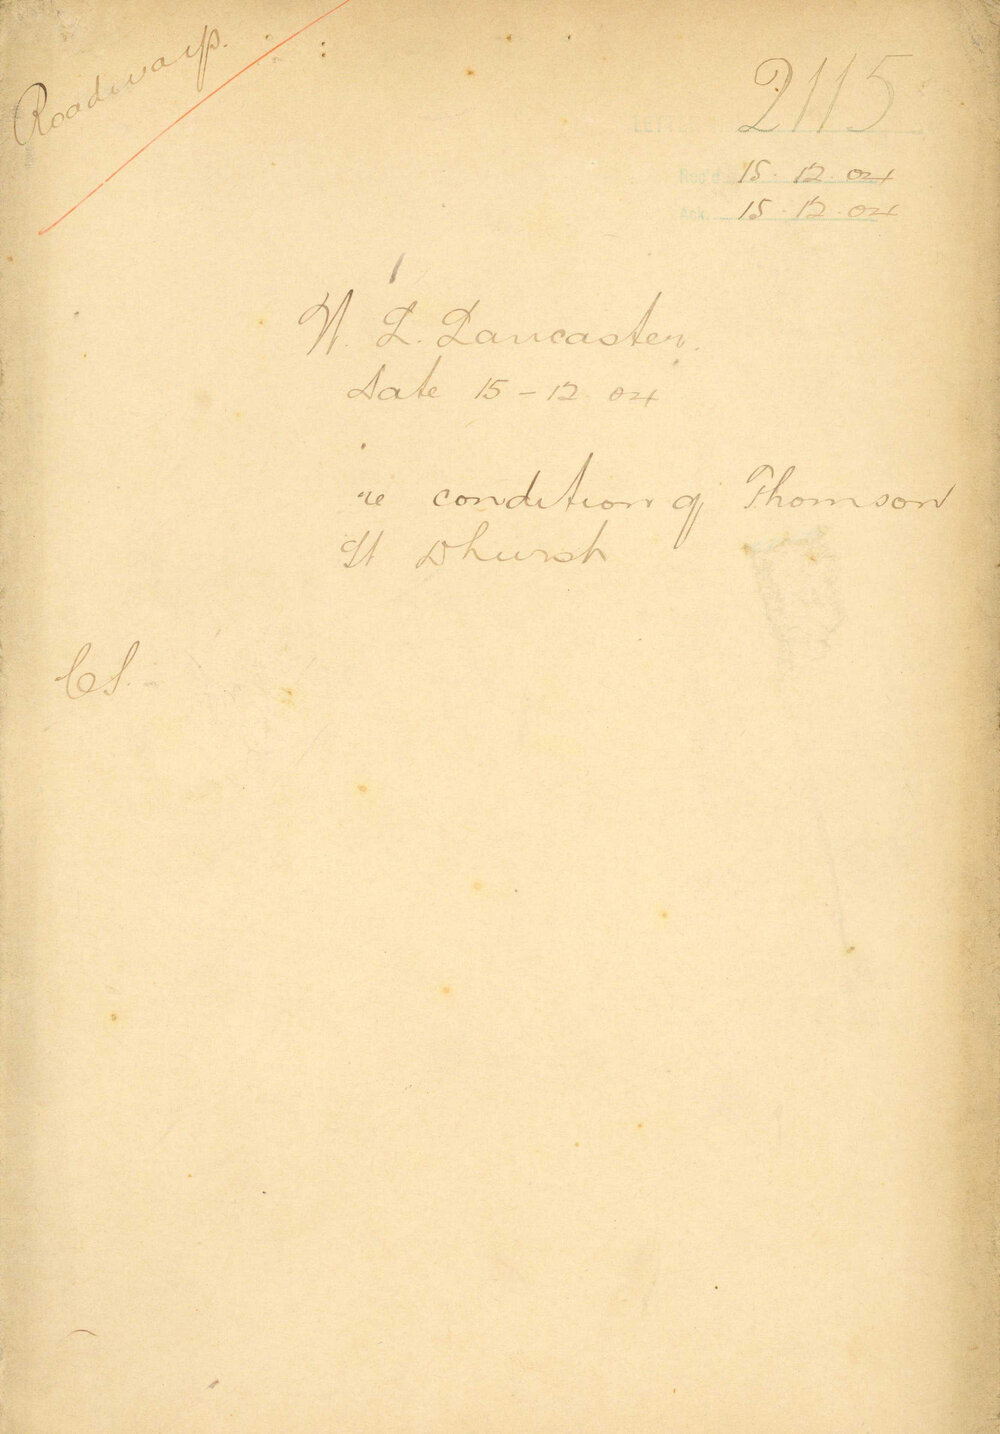 Roadways.
LETTER 2115
Rec'd 15. 12. 04
Ack. 15. 12. 04
W. L. Lancaster.
Date 15 - 12. 04
re condition of Thomson
St Dhurst
CS.